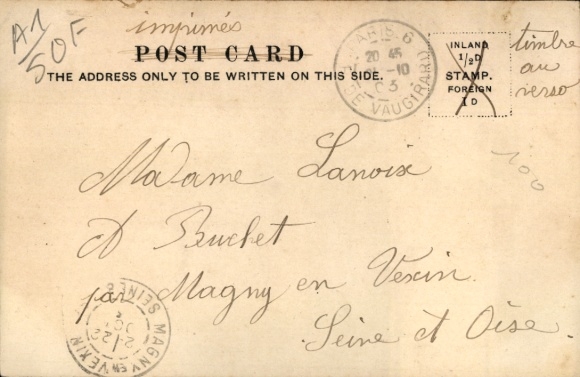 A1/50F
imprimés
POST CARD
THE ADDRESS ONLY TO BE WRITTEN ON THIS SIDE.
PARIS.6
20 45
10
03
VAUGIRARD
INLAND
1/2D
STAMP.
FOREIGN
1D
timbre
au
verso
100
Madame Lanoix
A Buchet
par Magny en Vexin.
Seine et Oise.
MAGNY EN VEXIN
SEINE